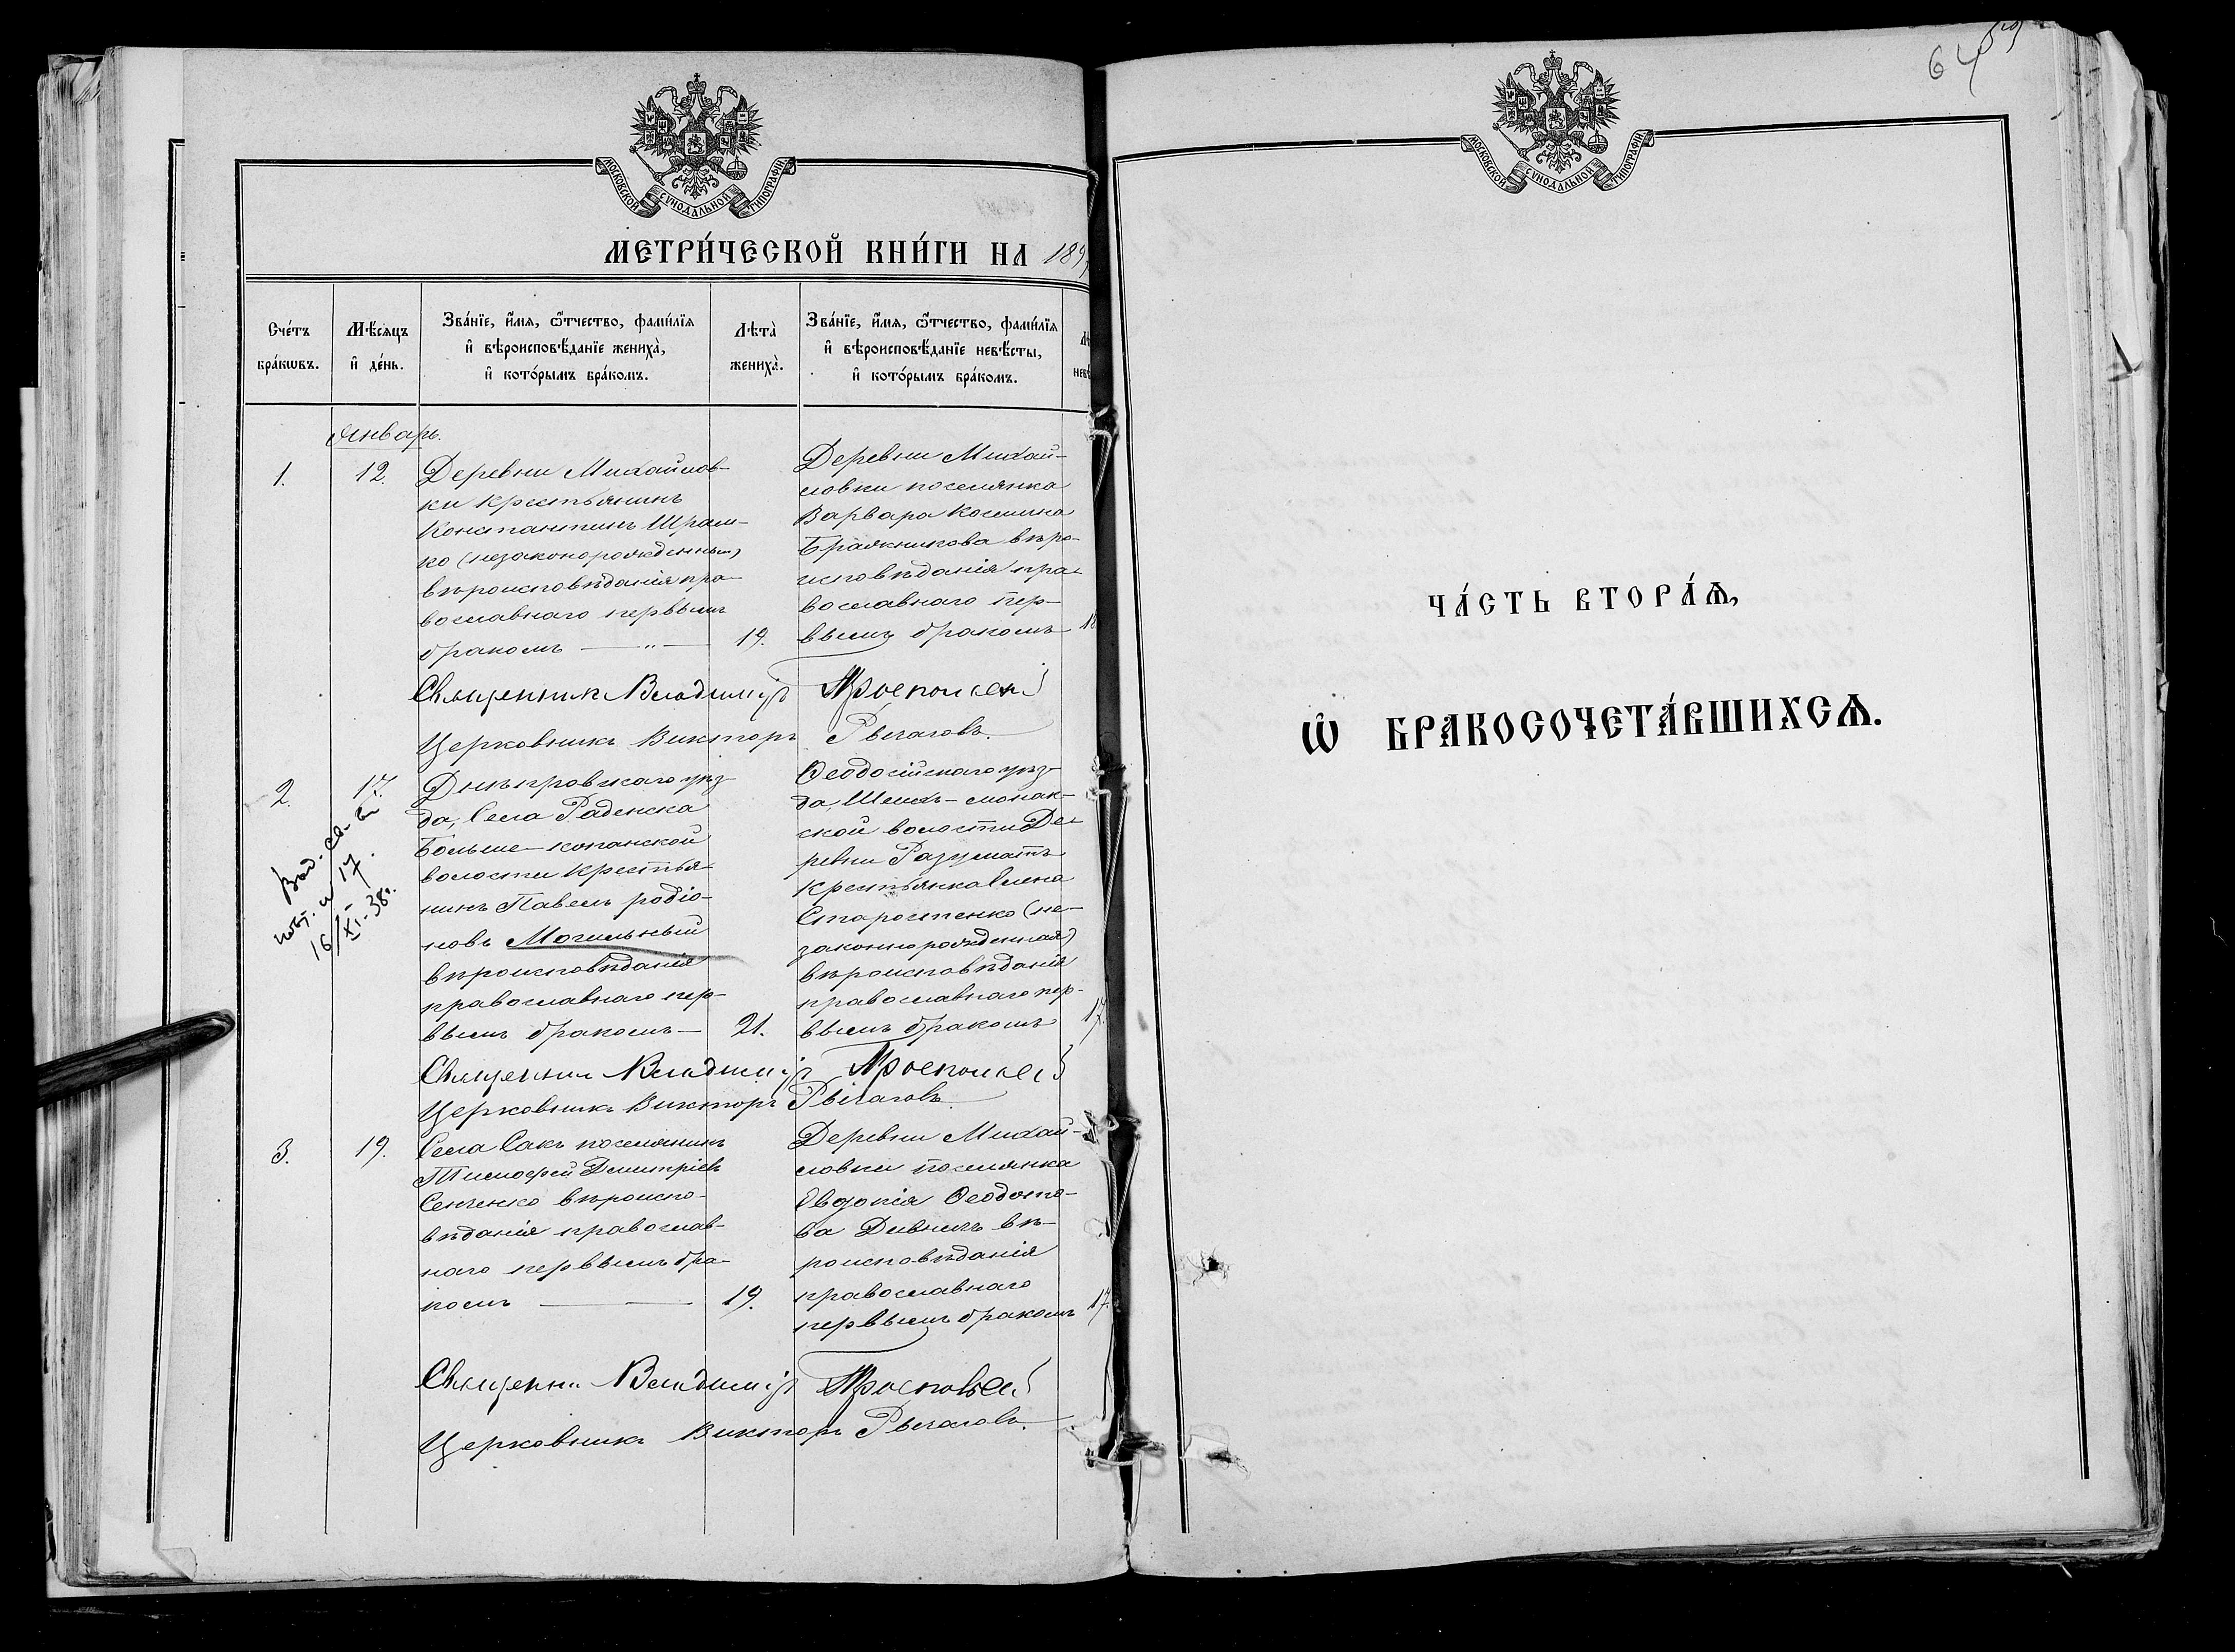 МОСКОВСКОЙ СУНОДАЛЬНОЙ ТИПОГРАФІИ
МЕТРИ́ЧЕСКОЙ КНИ́ГИ НА 189
Сче́тъ бра́кѡвъ.
Мѣ́сяцъ и҆ де́нь.
Зва́нїе, и҆́мѧ, ѻ҆́тчество, фами́лїѧ
и҆ вѣроисповѣ́данїе жениха̀,
и҆ кото́рымъ бра́комъ.
Лѣта̀ жениха̀.
Зва́нїе, и҆́мѧ, ѻ҆́тчество, фами́лїѧ
и҆ вѣроисповѣ́данїе невѣ́сты,
и҆ кото́рымъ бра́комъ.
Январь.
1.
12.
Деревни Михайлов-
ки крестьянинъ
Константинъ Шрам-
ко (незаконорожденный)
вѣроисповѣданія пра-
вославнаго первымъ
бракомъ — " —
19.
Деревни Михай-
ловки поселянка
Варвара Космина
Бражникова вѣро-
исповѣданія пра-
вославнаго пер-
вымъ бракомъ
18
Священникъ Владиміръ
Церковникъ Викторъ Рычаговъ.
2.
17.
Днѣпровскаго уѣз-
да, Села Раденска
Больше-копанской
волости Крестья-
нинъ Павелъ родіо-
новъ Могильный
вѣроисповѣданія
православнаго пер-
вымъ бракомъ —
21.
Ѳеодосійскаго уѣз-
да,
ской волости Де-
ревни
крестьянка Елена
Старостенко (не-
законнорожденная)
вѣроисповѣданія
православнаго пер-
вымъ бракомъ
17.
Выд. св-во
16/XI-38г.
Священникъ Владиміръ
Церковникъ Викторъ Рычаговъ.
3.
19.
Села Сакъ поселянинъ
Тимофей Димитріевъ
Сенченко вѣроиспо-
вѣданія православ-
наго первымъ бра-
комъ —
19.
Деревни Михай-
ловки поселянка
Евдокія Ѳеодото-
ва вѣ-
роисповѣданія
православнаго
первымъ бракомъ
17.
Священникъ Владиміръ
Церковникъ Викторъ Рычаговъ.
64
МОСКОВСКОЙ СУНОДАЛЬНОЙ ТИПОГРАФІИ
ЧА́СТЬ ВТОРА́Ѧ,
Ѡ҆ БРАКОСОЧЕТА́ВШИХСѦ.